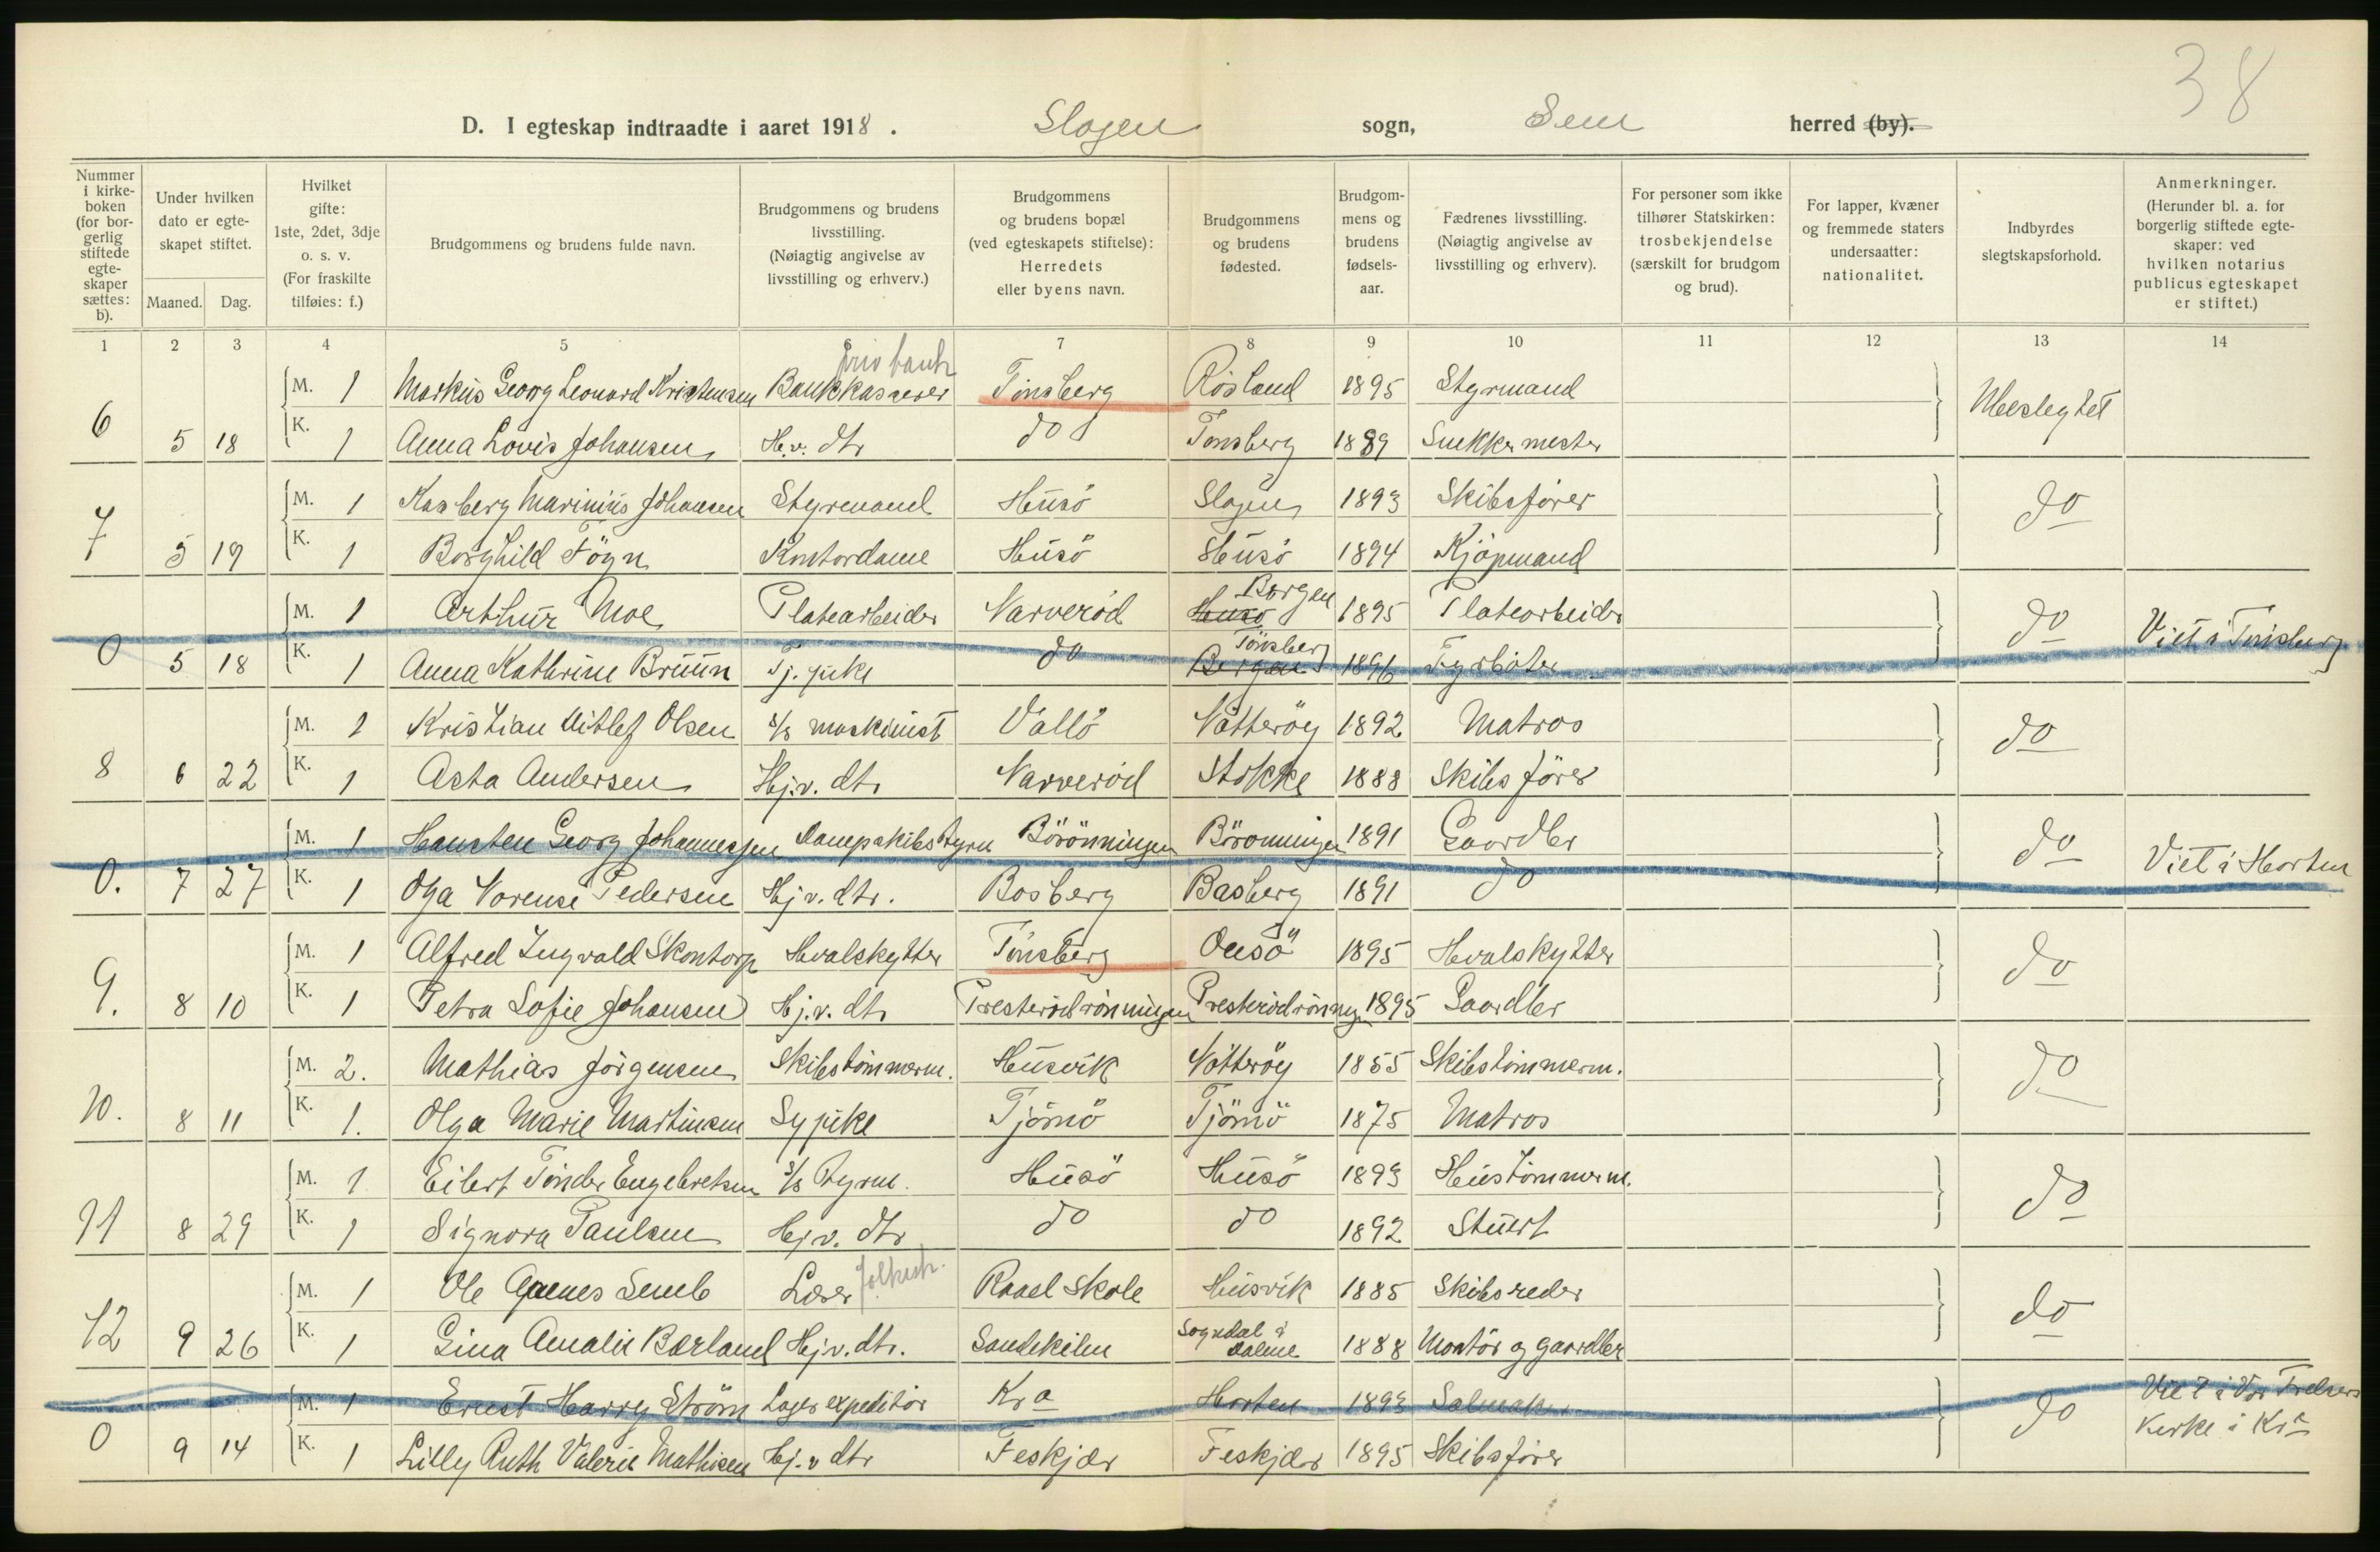 38
D. I egteskap indtraadte i aaret 1918 . Slagen sogn, Sem herred (by).
Nummer i kirke-boken (for bor-gerlig stiftede egte-skaper sættes: b).
Under hvilken dato er egte-skapet stiftet.
Maaned. Dag.
Hvilket gifte: 1ste, 2det, 3dje o. s. v. (For fraskilte tilføies: f.)
Brudgommens og brudens fulde navn.
Brudgommens og brudens livsstilling. (Nøiagtig angivelse av livsstilling og erhverv.)
Brudgommens og brudens bopæl (ved egteskapets stiftelse): Herredets eller byens navn.
Brudgommens og brudens fødested.
Brudgom-mens og brudens fødsels-aar.
Fædrenes livsstilling. (Nøiagtig angivelse av livsstilling og erhverv).
For personer som ikke tilhører Statskirken: trosbekjendelse (særskilt for brudgom og brud).
For lapper, kvæner og fremmede staters undersaatter: nationalitet.
Indbyrdes slegtskapsforhold.
Anmerkninger. (Herunder bl. a. for borgerlig stiftede egte-skaper: ved hvilken notarius publicus egteskapet er stiftet.)
1 2 3 4 5 6 7 8 9 10 11 12 13 14
priv bank
M. 1 Markus Georg Leonard Kristensen Bankkasserer Tönsberg Røsland 1895 Styrmand Ubeslegtet
6 5 18 K. 1 Anna Lovis Johansen H.v. dtr do Tønsberg 1889 Snekkermester
M. 1 Karsberg Marinius Johansen Styrmand Husö Slagen 1893 Skibsfører do
7 5 19 K. 1 Borghild Föyn Kontordame Husö Husö 1894 Kjöpmand
M. 1 Arthur Moe Platearbeider Narveröd Huso Bergen 1895 Platearbeidr do Viet i Tönsberg
0 5 18 K. 1 Anna Kathrine Bruun Tj. pike do Bergen Tönsberg 1896 Fyrböter
M. 1 Kristian Ditlef Olsen s/s maskinist Vallö Nötteröy 1892 Matros do
8 6 22 K. 1 Asta Andersen Hj.v. dtr Narveröd Stokke 1888 Skibsförer
M. 1 Hansten Georg Johannessen Dampskibsstyrm Börönningen Börönningen 1891 Gaardbr do Viet i Horten
0. 7 27 K. 1 Olga Norense Pedersen Hj.v. dtr. Basberg Basberg 1891 do
M. 1 Alfred Ingvald Skontorp Hvalskytter Tönsberg Ousö 1895 Hvalskytter do
9. 8 10 K. 1 Petra Sofie Johansen Hj.v. dtr Presterödrönningen Presterödrönning 1895 Gaardbr
M. 2. Mathias Jörgensen Skibstömmerm. Husvik Nötteröy 1855 Skibstömmerm. do
10. 8 11 K. 1. Olga Marie Martinsen Sypike Tjömö Tjömö 1875 Matros
M. 1 Eilert Tönder Engebretsen s/s styrm. Husö Husö 1893 Hustömmerm. do
11 8 29 K. 1 Signora Paulsen Hj v. dtr do do 1892 Stuert
M. 1 Ole Agenes Semb Lærer folkesk. Raael Skole Husvik 1885 Skibsreder do
12 9 26 K. 1 Gina Amalie Barland Hj v. dtr. Sandekilen Sogndal i Dalene 1888 Montör og gaardbr
M. 1 Ernst Harry Ström Lagerexpeditör Kr a Horten 1893 Salmak. do Viet i Vor Frelsers
0 9 14 K. 1 Lilly Ruth Valerie Mathisen Hj.v dtr Feskjær Feskjær 1895 Skibsförer Kirke i Kra